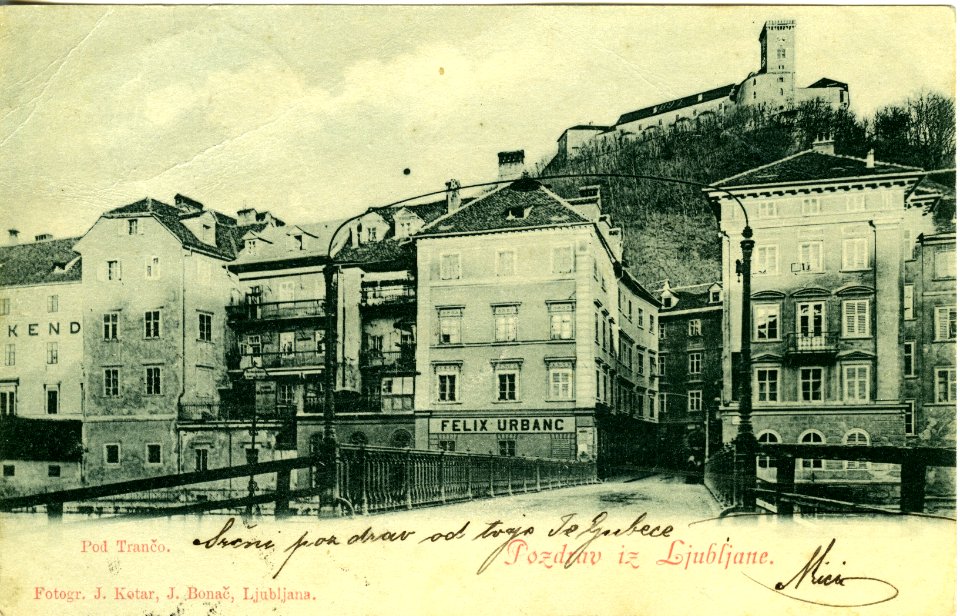 KEND
FELIX URBANC
Pod Trančo.
Srčni pozdrav od tvoje
Pozdrav iz Ljubljane.
Mici
Fotogr. J. Kotar, J. Bonač, Ljubljana.